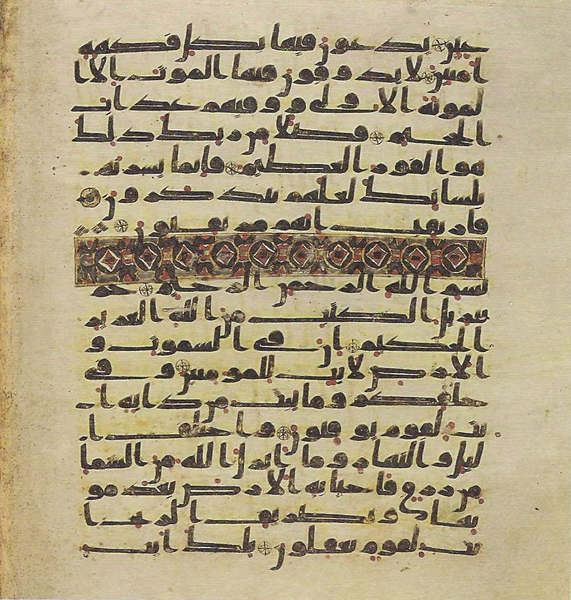 عين يدعون فيها بكل فكهة
امنين لا يذوقون فيها الموت الا ا
لموتة الاولى ووقيهم عذاب
الجحيم فضلا من ربك ذلك
هو الفوز العظيم فانما يسرنه
بلسانك لعلهم يتذكرون
فارتقب انهم مرتقبون
بسم الله الرحمن الرحيم حم
تنزيل الكتب من الله العزيز
الحكيم ان في السموت و
الارض لايت للمومنين وفي
خلقكم وما يبث من دابة ا
يت لقوم يوقنون واختلف ا
ليل والنهار وما انزل الله من السما
من رزق فاحيا به الارض بعد مو
تها وتصريف الريح ا
يت لقوم يعقلون تلك ايت